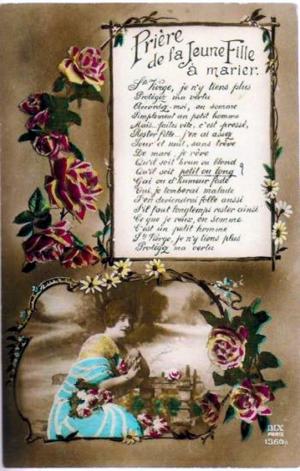 Prière
de la Jeune Fille
à marier.
Ste Vierge, je n'y tiens plus
Protégez ma vertu
Accordez-moi, en somme
Simplement un petit homme
Mais faites vite, c'est pressé,
Rester fille... j'en ai assez
Jour et nuit, sans trêve
De mari je rêve
Qu'il soit brun ou blond
Qu'il soit petit ou long ?
Gai ou d'humeur fade
Oui, je tomberai malade
J'en deviendrai folle aussi
S'il faut longtemps rester ainsi
Ce que je veux, en somme
C'est un petit homme
Ste Vierge, je n'y tiens plus
Protégez ma vertu
DIX
PARIS
1360